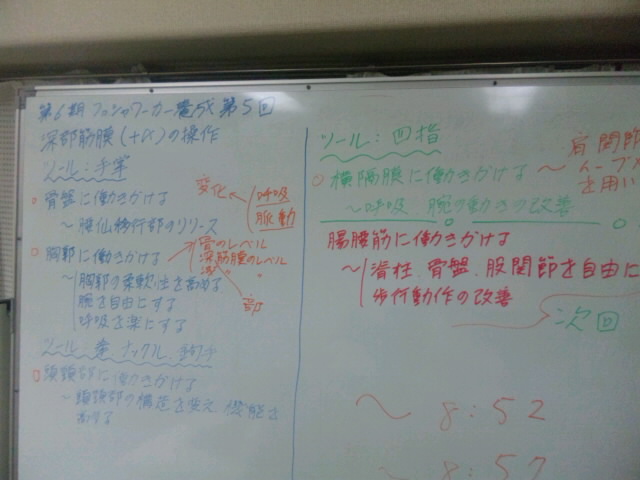 第6期 ファシャワーカー養成 第5回
深部筋膜(+α)の操作
ツール:手掌
○骨盤に働きかける
～腰仙移行部のリリース
変化 ← 呼吸
脈動
○胸郭に働きかける
骨のレベル
深筋膜のレベル
浅 〃 〃
～胸郭の柔軟性を高める
腕を自由にする
呼吸を楽にする
ツール:拳 ナックル
○頭頸部に働きかける
～頭頸部の構造を変え、機能を
高める
ツール:四指
○横隔膜に働きかける
～呼吸 腕の動きの改善
肩関節
を用い
腸腰筋に働きかける
～脊柱、骨盤、股関節を自由に
歩行動作の改善
次回
～ 8:52
～ 8:57